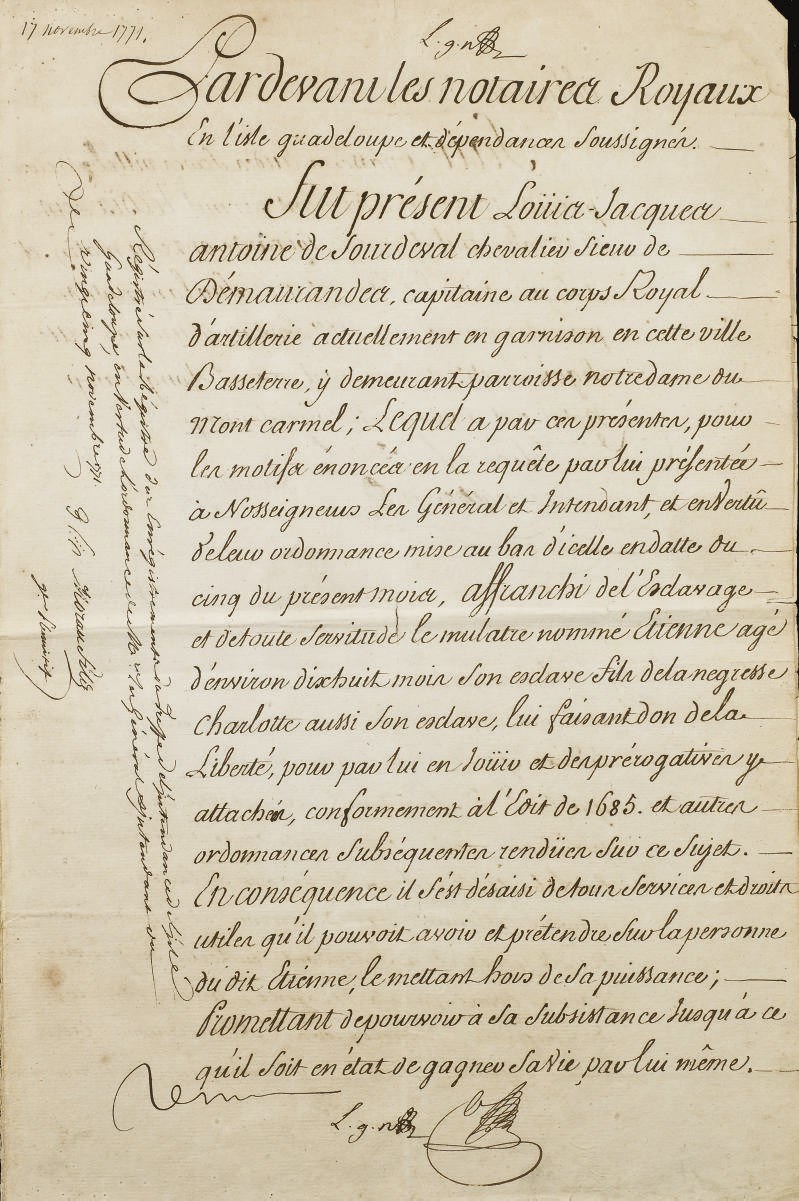 17 novembre 1771.
L. g. n
Pardevant les notaires Royaux
En l'isle guadeloupe et dépendances soussignés.
Fut présent Loüis-Jacques
antoine de Sourdeval chevalier sieur de
Démaurandes, capitaine au corps Royal
d'artillerie actuellement en garnison en cette ville
Basseterre, ÿ demeurant parroisse notre dame du
Mont carmel; Lequel a par ces présentes, pour
les motifs énoncés en la requête par lui présentée
à Nosseigneurs Les Général et Intendant, et en Vertû
de leur ordonnance mise au bas d'icelle en datte du
cinq du présent mois, affranchi de l'Esclavage
et de toute servitude le mulatre nommé Etienne agé
d'environ dixhuit mois son esclave fils de la negresse
Charlotte aussi son esclave, lui faisant don de la
Liberté, pour par lui en joüir et des prérogatives y
attachés, conformement à l'Edit de 1685. et autres
ordonnances subséquentes rendües sur ce sujet.
En conséquence il s'est désaisi de tous services et droits
utiles qu'il pouvoit avoir et prétendre sur la personne
du dit Etienne, le mettant hors de sa puissance;
Promettant de pourvoir à sa subsistance jusqu'à ce
qu'il soit en état de gagner sa Vie par lui même.
L. g. n
Régistré sur le Régistre des Enrégistrements du Greffe de l'intendance de l'isle
Guadeloupe, en Vertu de l'ordonnance de M. les Général et intendant du
vingt cinq novembre 1771.